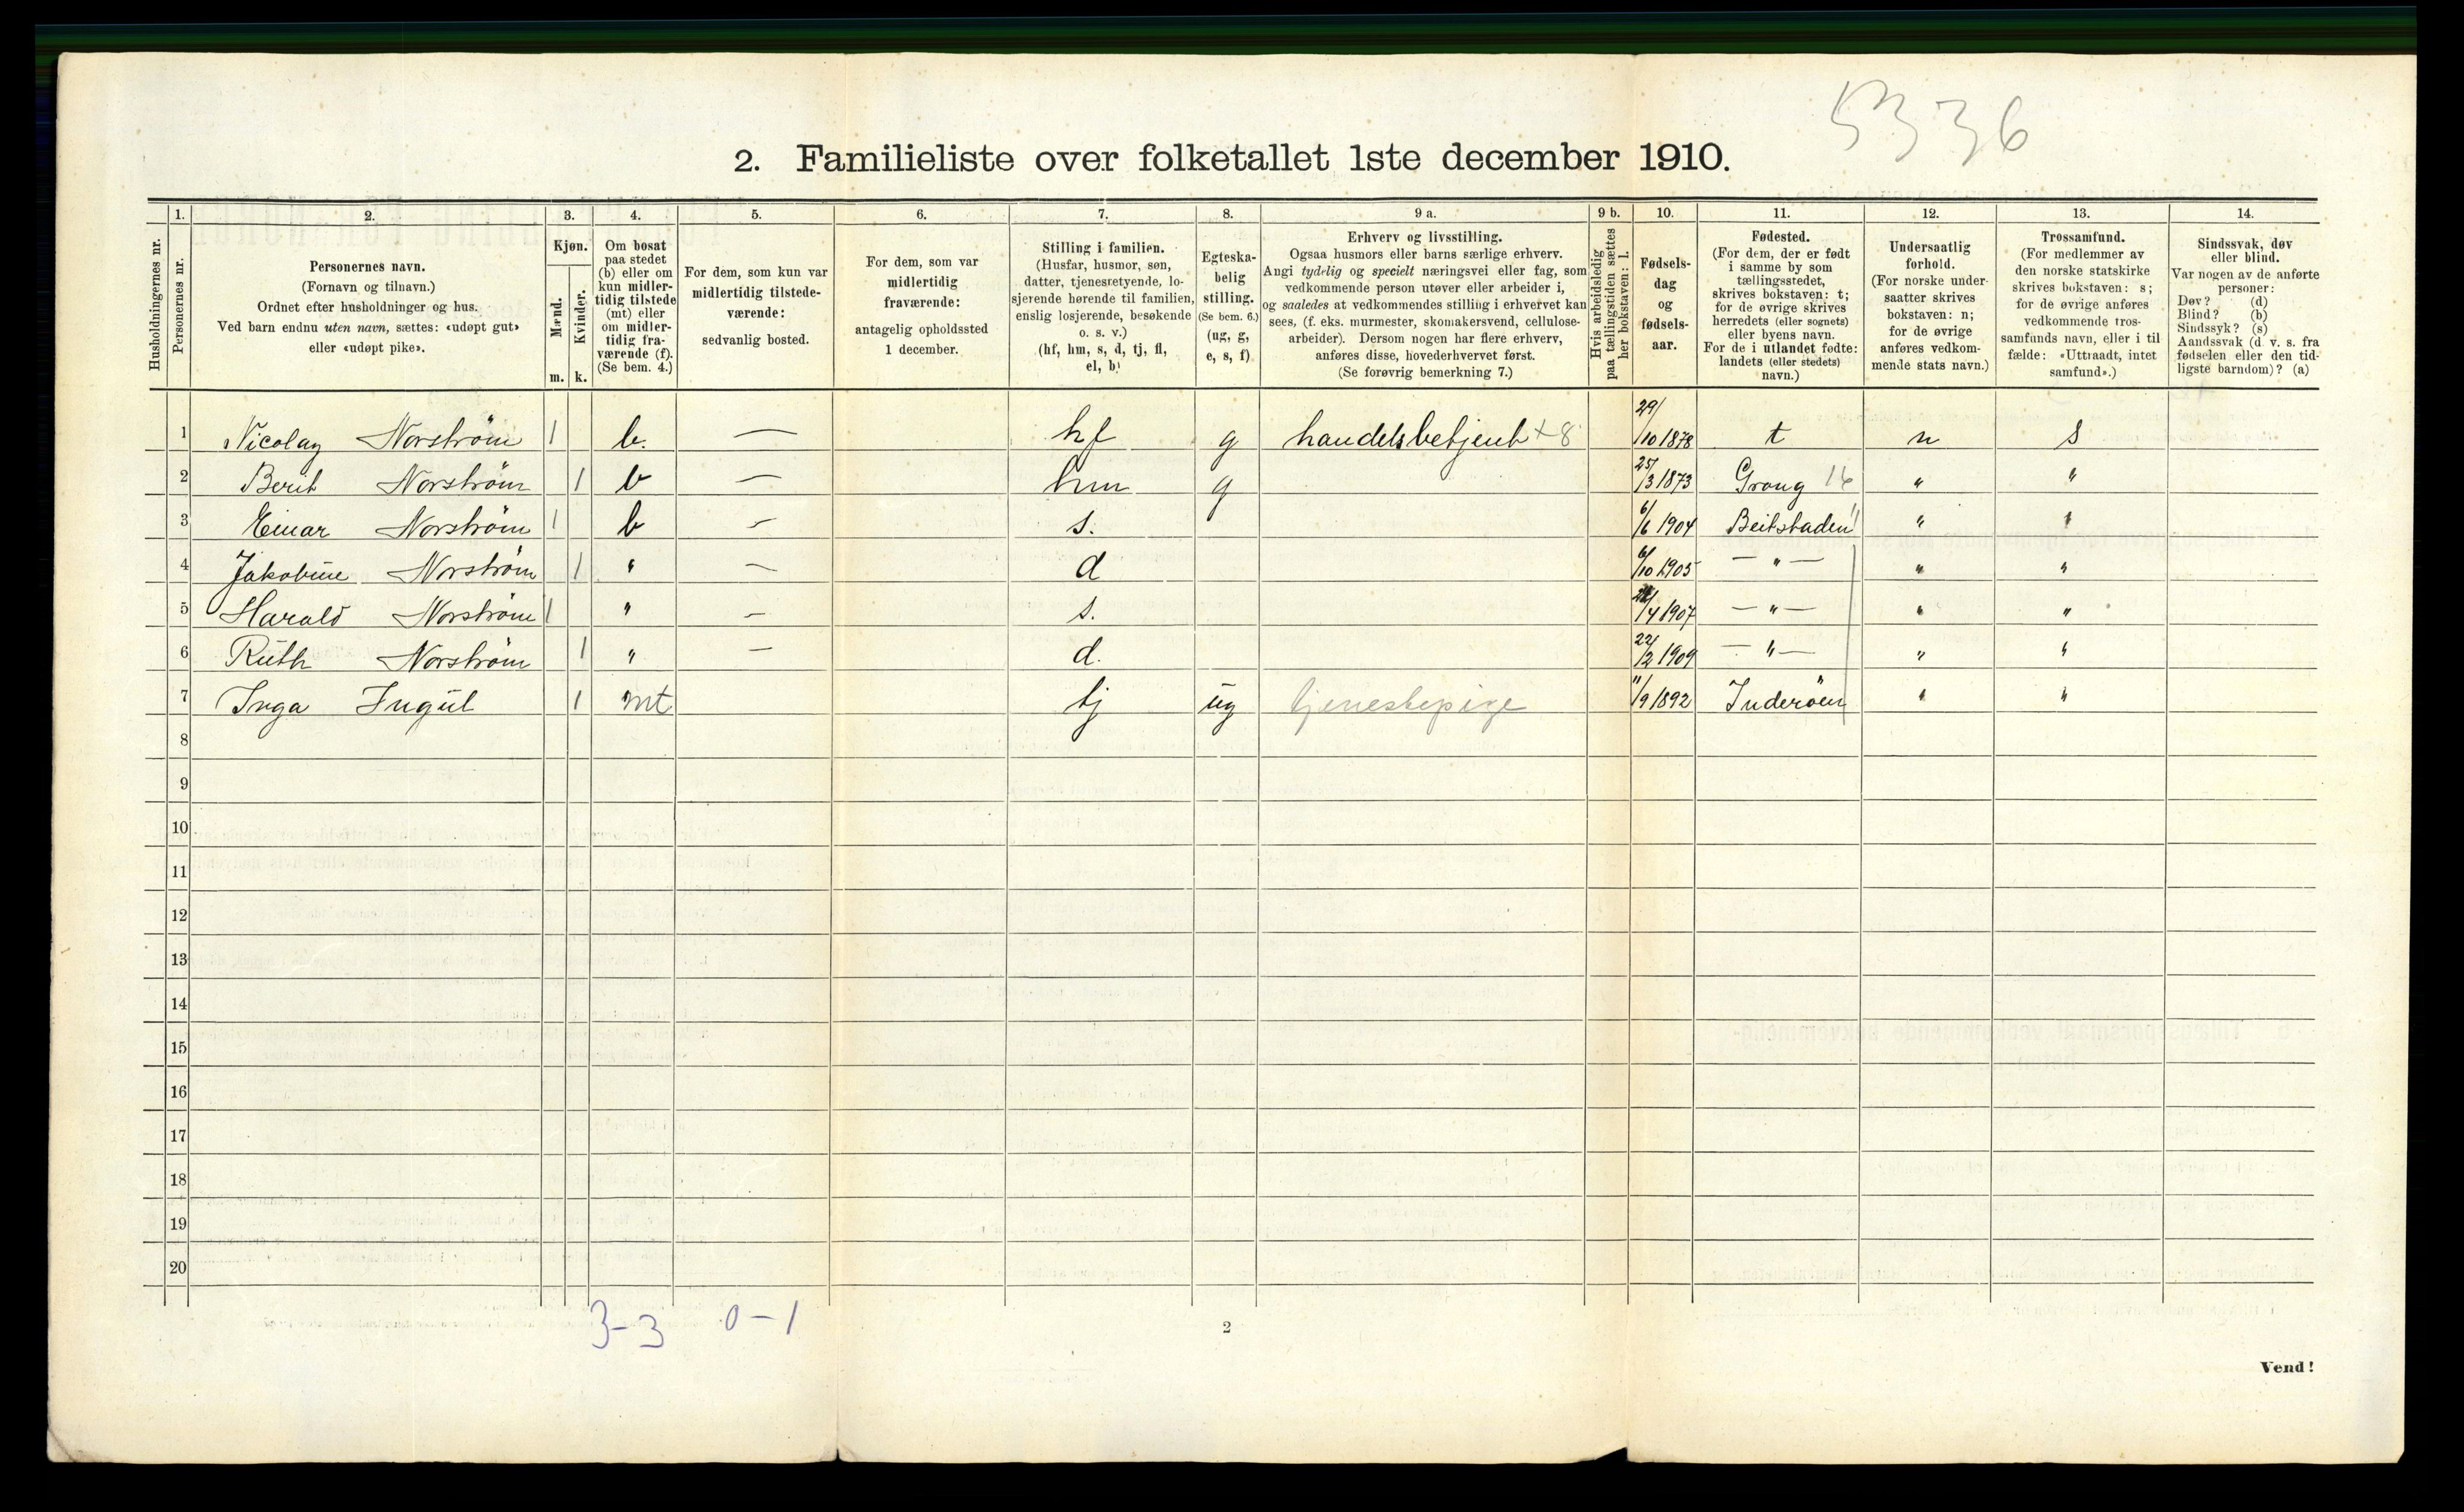 5336
2. Familieliste over folketallet 1ste december 1910.
1. 2. 3. 4. 5. 6. 7. 8. 9 a. 9 b. 10. 11. 12. 13. 14.
Husholdningernes nr.
Personernes nr.
Personernes navn.
(Fornavn og tilnavn.)
Ordnet efter husholdninger og hus.
Ved barn endnu uten navn, sættes: «udøpt gut»
eller «udøpt pike».
Kjøn.
Mænd.
Kvinder.
m. k.
Om bosat
paa stedet
(b) eller om
kun midler-
tidig tilstede
(mt) eller
om midler-
tidig fra-
værende (f).
(Se bem. 4.)
For dem, som kun var
midlertidig tilstede-
værende:
sedvanlig bosted.
For dem, som var
midlertidig
fraværende:
antagelig opholdssted
1 december.
Stilling i familien.
(Husfar, husmor, søn,
datter, tjenestetyende, lo-
sjerende hørende til familien,
enslig losjerende, besøkende
o. s. v.)
(hf, hm, s, d, tj, fl,
el, b)
Egteska-
belig
stilling.
(Se bem. 6.)
(ug, g,
e, s, f)
Erhverv og livsstilling.
Ogsaa husmors eller barns særlige erhverv.
Angi tydelig og specielt næringsvei eller fag, som
vedkommende person utøver eller arbeider i,
og saaledes at vedkommendes stilling i erhvervet kan
sees, (f. eks. murmester, skomakersvend, cellulose-
arbeider). Dersom nogen har flere erhverv,
anføres disse, hovederhvervet først.
(Se forøvrig bemerkning 7.)
Hvis arbeidsledig
paa tællingstiden sættes
her bokstaven: l.
Fødsels-
dag
og
fødsels-
aar.
Fødested.
(For dem, der er født
i samme by som
tællingsstedet,
skrives bokstaven: t;
for de øvrige skrives
herredets (eller sognets)
eller byens navn.
For de i utlandet fødte:
landets (eller stedets)
navn.)
Undersaatlig
forhold.
(For norske under-
saatter skrives
bokstaven: n;
for de øvrige
anføres vedkom-
mende stats navn.)
Trossamfund.
(For medlemmer av
den norske statskirke
skrives bokstaven: s;
for de øvrige anføres
vedkommende tros-
samfunds navn, eller i til-
fælde: «Uttraadt, intet
samfund».)
Sindssvak, døv
eller blind.
Var nogen av de anførte
personer:
Døv? (d)
Blind? (b)
Sindssyk? (s)
Aandssvak (d. v. s. fra
fødselen eller den tid-
ligste barndom)? (a)
1 Nicolay Norström 1 b. — hf g handelsbetjent +8 29/10 1878 t n s
2 Berit Norström 1 b — hm g 25/3 1873 Grong 16 " "
3 Einar Norström 1 b — s. 6/6 1904 Beitstaden " "
4 Jakobine Norström 1 " — d 6/10 1905 — " — " "
5 Harald Norström 1 " — s. /4 1907 — " — " "
6 Ruth Norström 1 " — d. 22/2 1909 — " — " "
7 Inga Ingul 1 mt tj ug tjenestepige 11/9 1892 Inderöen " "
8
9
10
11
12
13
14
15
16
17
18
19
20
3-3 0-1
2
Vend!